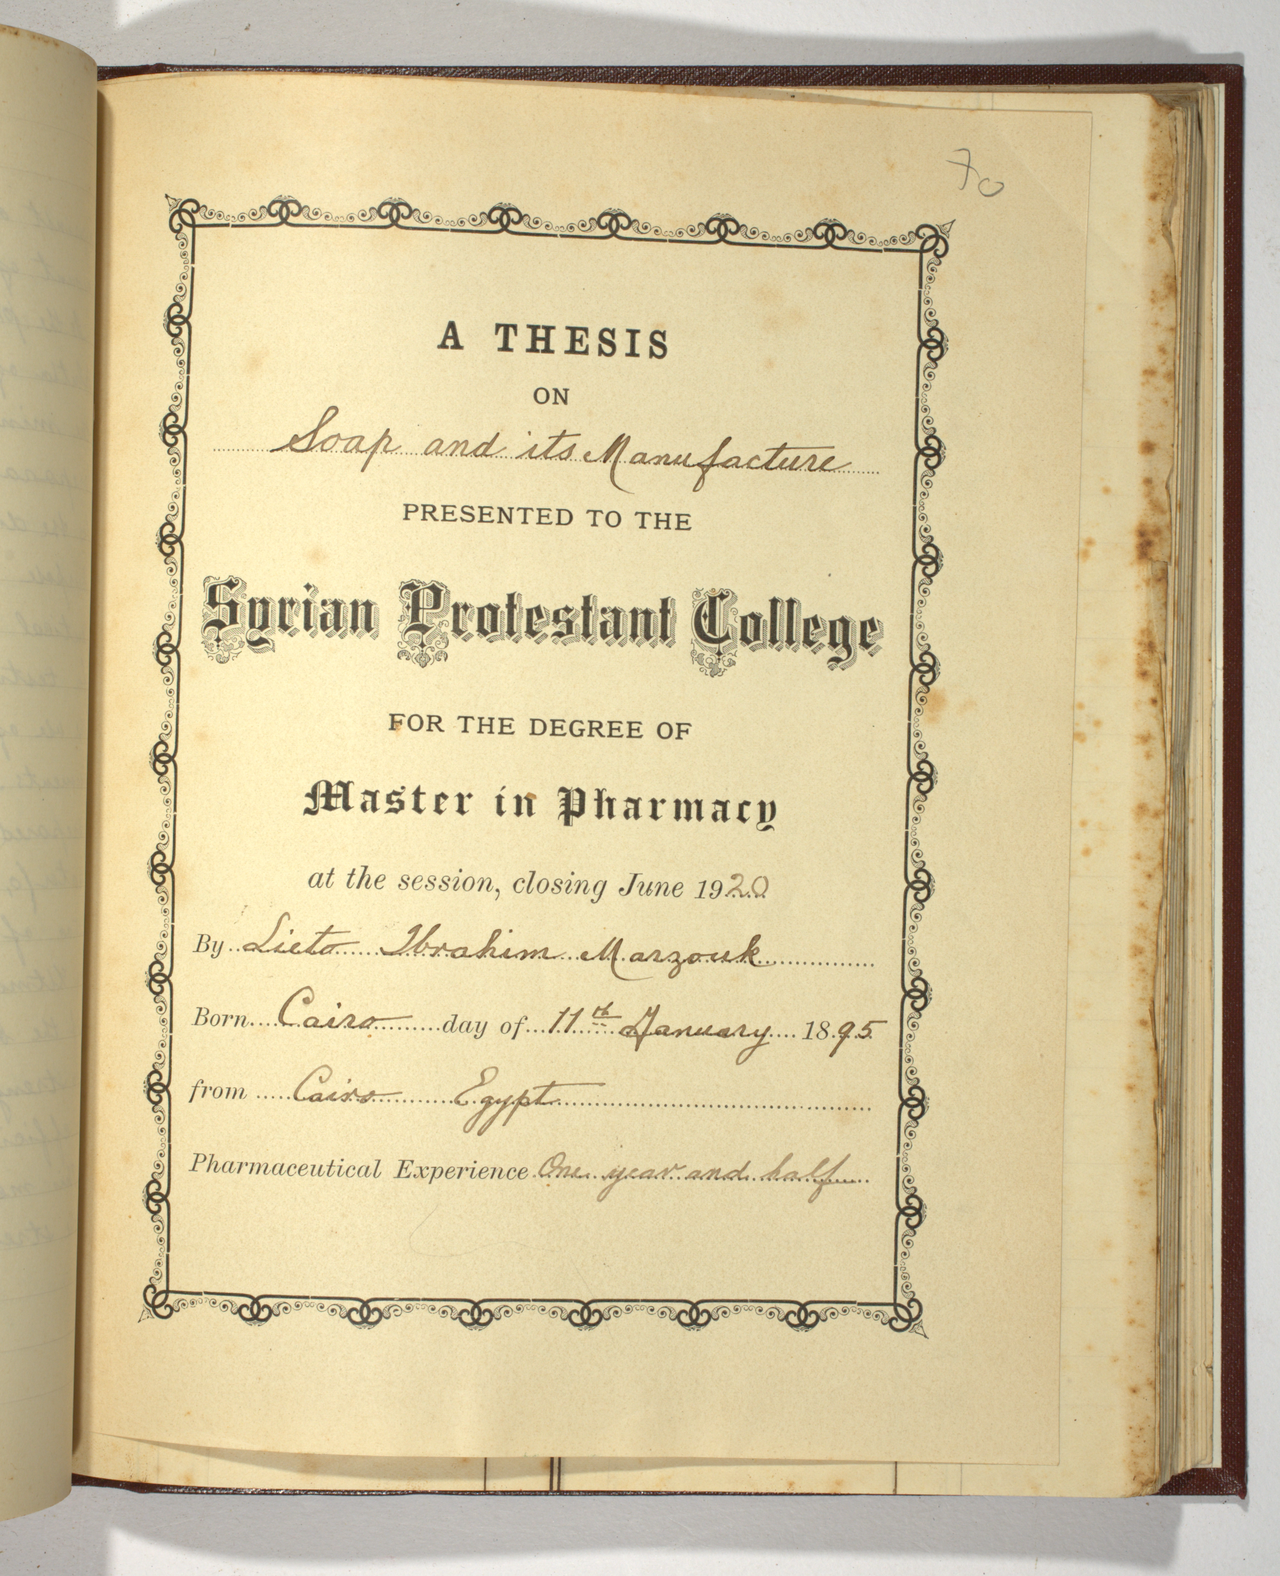 70
A THESIS
ON
Soap and its Manufacture
PRESENTED TO THE
Syrian Protestant College
FOR THE DEGREE OF
Master in Pharmacy
at the session, closing June 1920
By Lieto Ibrahim Marzouk
Born Cairo day of 11th January 1895
from Cairo Egypt
Pharmaceutical Experience One year and half